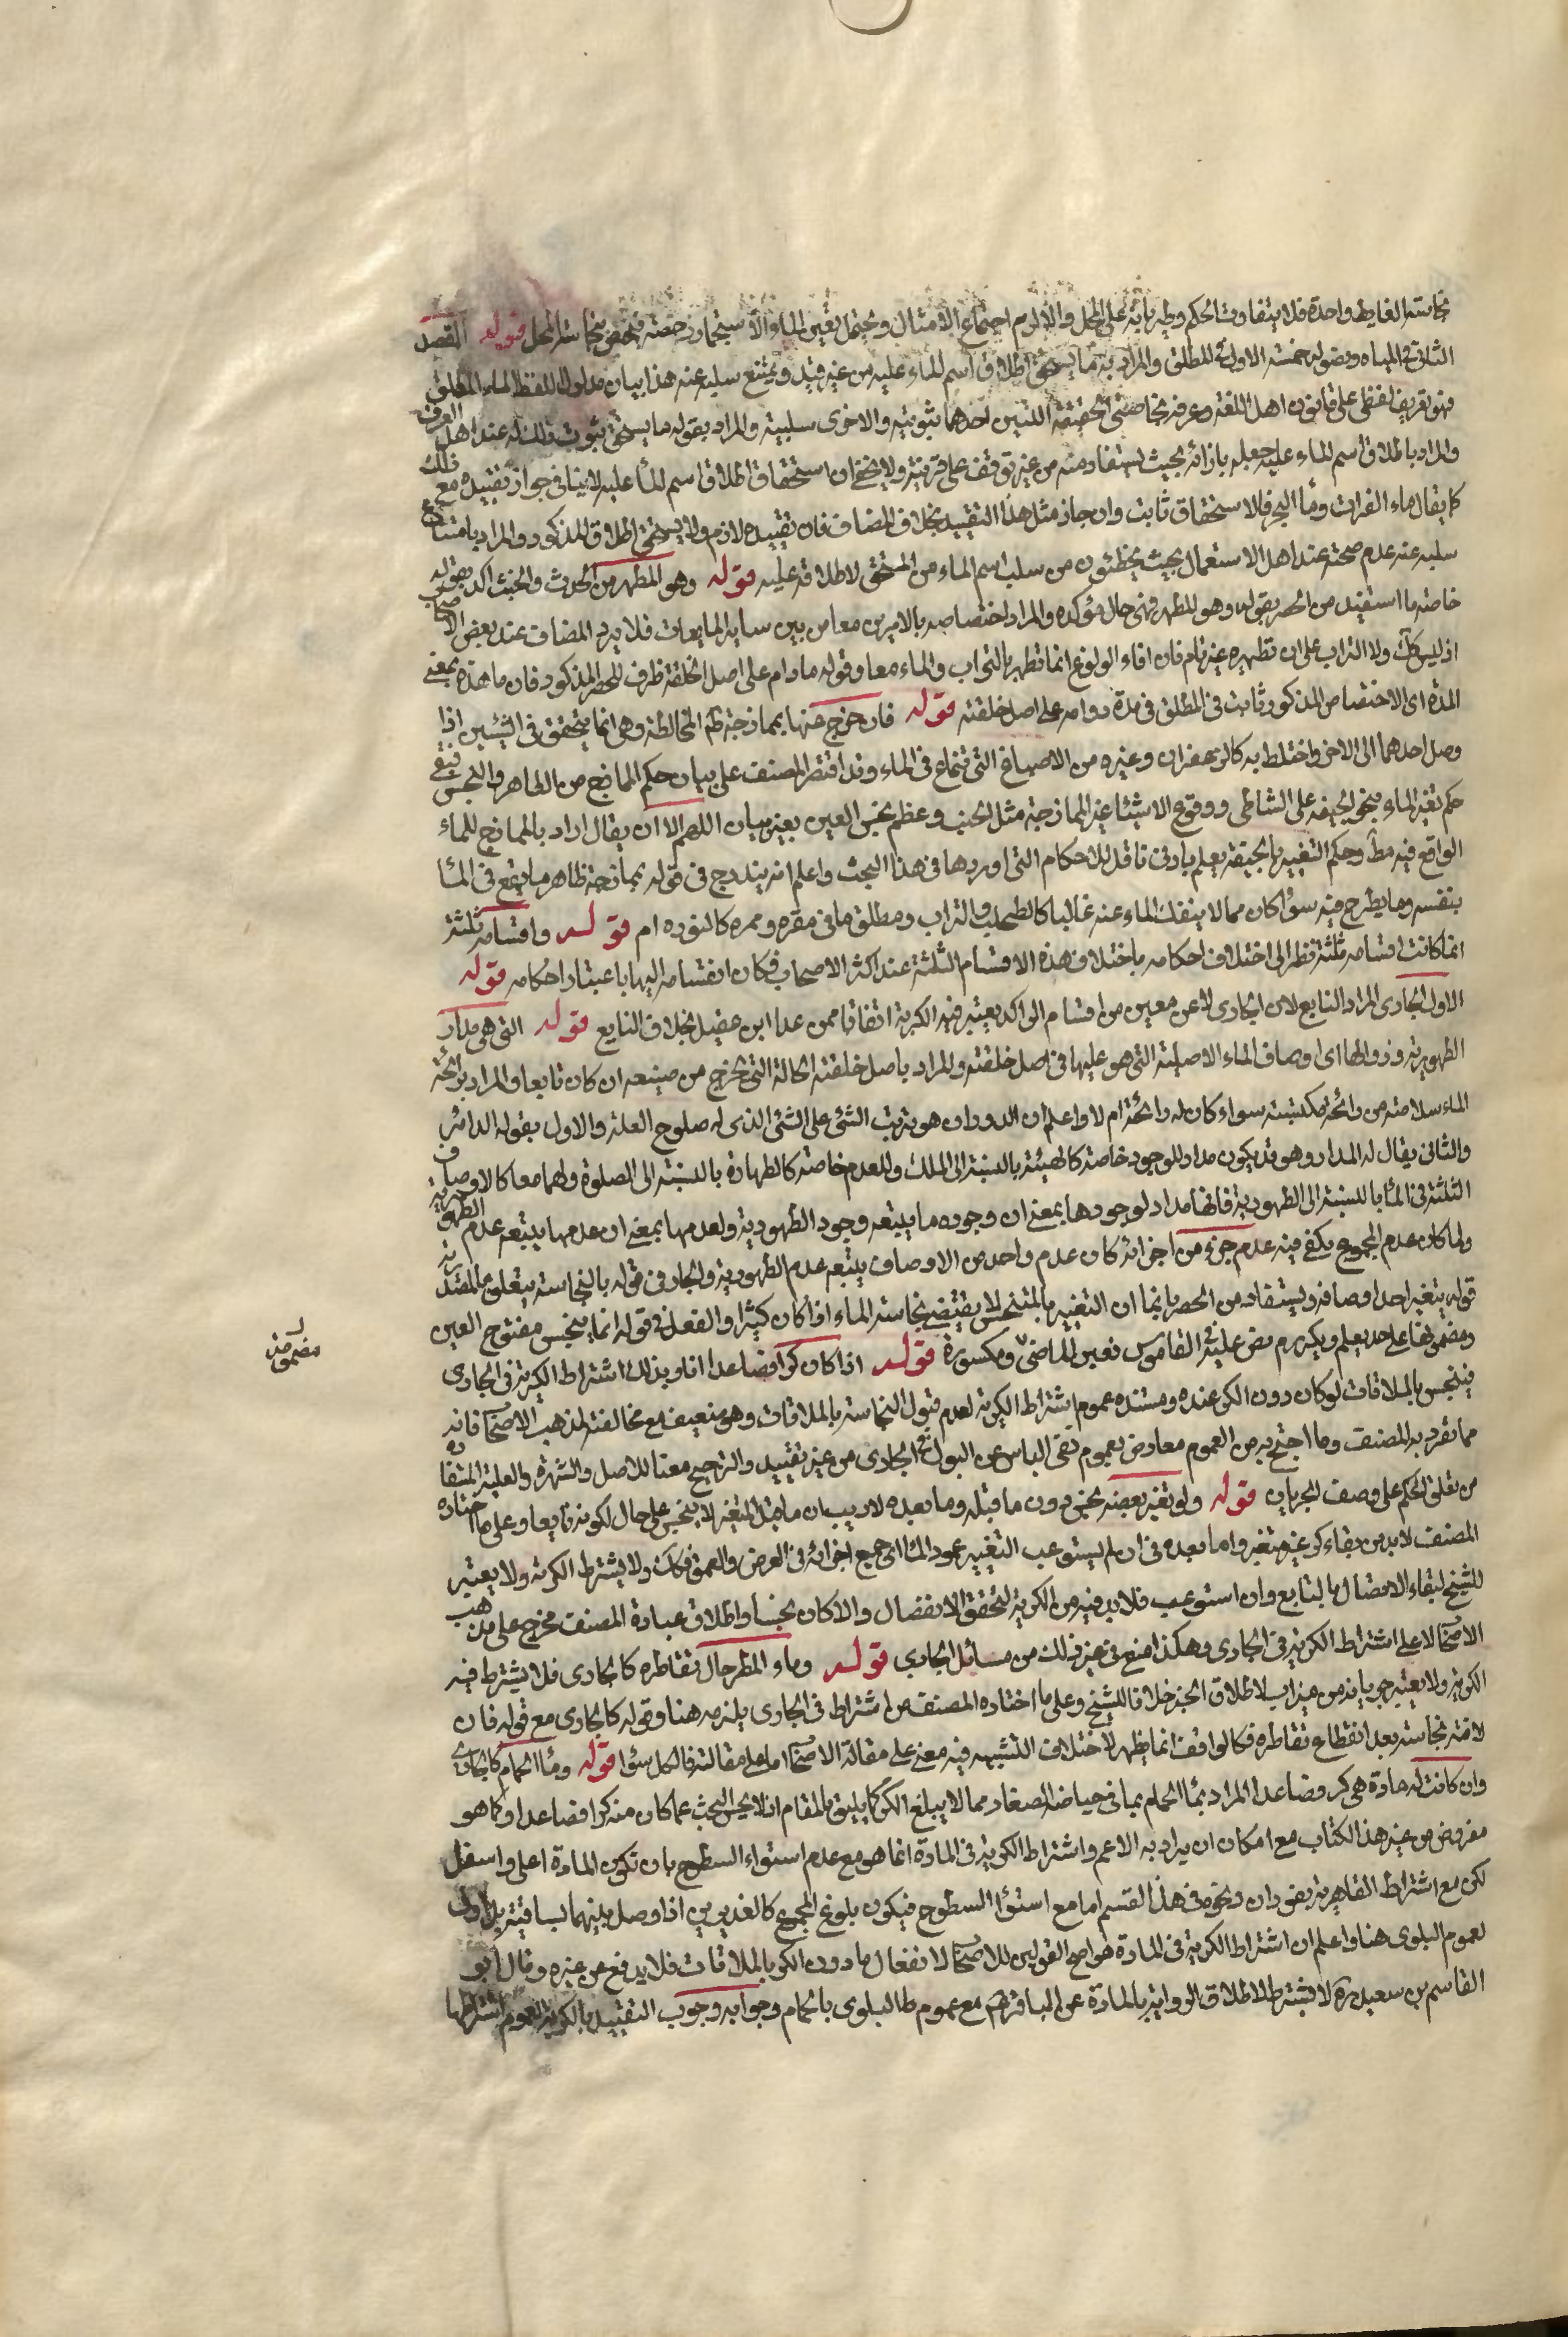 نجاسة الغايط واحدة فلا يتفاوت الحكم وطريانه على المحل والا لزم اجتماع الامثال ويحتمل تعين الماء لان الاستجمار رخصة فيختص بنجاسة المحل قوله المقصد
الثانى فى المياه وفصوله خمسة الاول فى المطلق والمراد به ما يستحق اطلاق اسم الماء عليه من غير قيد ويمتنع سلبه عنه هذا بيان مدلول لفظ الماء المطلق
فهو تعريف لفظى على قانون اهل اللغة وعرفه بخاصتى الحقيقة اللتين احدهما ثبوتية والاخرى سلبية والمراد بقوله ما يستحق ثبوت ذلك له عند اهل العرف
والمراد باطلاق اسم الماء عليه جعله بازائه بحيث يستفاد منه من غير توقف على قرينة ولا يخفى ان استحقاق اطلاق اسم الماء عليه لا ينافى جواز تقييده مع ذلك
كما يقال ماء الفرات وماء البحر فالاستحقاق ثابت وان جاز مثل هذا التقييد بخلاف المضاف فان تقييده لازم ولا يستحق اطلاق المذكور والمراد بامتناع
سلبه عنه عدم صحته عند اهل الاستعمال بحيث يخطئون من سلب اسم الماء من المستحق لاطلاقه عليه قوله وهو المطهر من الحدث والخبث اكد بقوله
خاصة ما استفيد من الحصر بقوله وهو المطهر فهى حال مؤكده والمراد اختصاصه بالامرين معا من بين ساير المايعات فلا يرد المضاف عند بعض الاصحاب
اذ ليس كك ولا التراب على ان تطهيره غير تام فان اناء الولوغ انما تطهر بالتراب والماء معا وقوله مادام على اصل الخلقة ظرف للحصر المذكور فان ما هذه بمعنى
المدة اى الاختصاص المذكور ثابت فى المطلق فى مدة دوامه على اصل خلقته قوله فان خرج عنها بممازجة طاهر المخالطة وهى انما يتحقق فى الشيئين اذا
وصل احدهما الى الاخر واختلط به كالزعفران وغيره من الاصباغ التى تنماع فى الماء وقد اقتصر المصنف على بيان حكم الممازج من الطاهر والنجس فبقى
حكم تغير الماء بنحو الجيفة على الشاطى ووقوع الاشياء غير الممازجة مثل الجيف وعظم نجس العين بغير بيان اللهم الا ان يقال اراد بالممازج للماء
الواقع فيه مط وحكم التغيير بالجيفة يعلم بادنى تامل للاحكام التى اوردها فى هذا البحث واعلم انه يندرج فى قوله بممازجة طاهر ما يقع فى الماء
بنفسه وما يطرح فيه سواء كان مما لا ينفك الماء عنه غالبا كالطحلب والتراب ومطلق ما فى مقره وممره كالنوره ام قوله واقسامه ثلثة
انما كانت اقسامه ثلثة نظرا الى اختلاف احكامه باختلاف هذه الاقسام الثلثة عند اكثر الاصحاب فكان انقسامه اليها باعتبار احكامه قوله
الاول الجارى المراد النابع لان الجارى لا عن معين من اقسام الراكد يعتبر فيه الكرية اتفاقا ممن عدا ابن عقيل بخلاف النابع قوله التى هى مدار
الطهورية وزوالها اى اوصاف الماء الاصلية التى هو عليها فى اصل خلقته والمراد باصل خلقته الحالة التى يخرج من منبعه ان كان نابعا والمراد برائحة
الماء سلامته من رائحة مكتسبة سواء كان له رائحة ام لا واعلم ان الدوران هو ترتب الشئ على الشئ الذى له صلوح العلة والاول بقوله الدائر
والثانى يقال له المدار وهو قد يكون مدار للوجود خاصة كالهيئة بالنسبة الى الملك وللعدم خاصة كالطهارة بالنسبة الى الصلوة ولهما معا كالاوصاف
الثلثة فى الماء بالنسبة الى الطهورية فانها مدار لوجودها بمعنى ان وجوده ما يتبعه وجود الطهورية ولعدمها بمعنى ان عدمها يتبعه عدم الطهورية
ولما كان عدم المجموع يكفى فيه عدم جزء من اجزائه كان عدم واحد من الاوصاف يتبعه عدم الطهورية والجار فى قوله بالنجاسة يتعلق بالمصدر
قوله بتغير احد اوصافه ويستفاد من الحصر بانما ان التغيير بالمتنجس لا يقتضى نجاسة الماء اذا كان كثيرا والفعل فى قوله انما ينجس مفتوح العين
ومضمونها على حد يعلم ويكرم نص عليه فى القاموس فعين الماضى ومكسورة قوله اذا كان كرا فصاعدا افاد بذلك اشتراط الكرية فى الجارى
فينجس بالملاقات لو كان دون الكر عنده ومستنده عموم اشتراط الكرية لعدم قبول النجاسة بالملاقات وهو ضعيف مع مخالفته لمذهب الاصحاب فانه
مما تفرد به المصنف وما احتج به من العموم معارض بعموم نفى الباس عن البول فى الجارى من غير تقييد والترجيح معنا للاصل والشهرة والعلية المستفادة
من تعلق الحكم على وصف الجريان قوله ولو تغير بعضه نجس دون ما قبله وما بعده لا ريب ان ما قبل المتغير لا ينجس على حال لكونه نابعا وعلى ما اختاره
المصنف لا بد من بقاء كر غير متغير واما بعده فى ان لم يستوعب التغيير عمود الماء اى جميع اجزائه فى العرض والعمق فكك ولا يشترط الكرية ولا يعتبر
للشيخ لبقاء الاتصال بالنابع وان استوعب فلا بد فيه من الكرية لتحقق الانفصال والا كان نجسا واطلاق عبارة المصنف مخرج على مذهب
الاصحاب لا على اشتراط الكرية فى الجارى وهكذا صنع فى غير ذلك من مسائل الجارى قوله وماء المطر حال تقاطره كالجارى فلا يشترط فيه
الكرية ولا يعتبر جريانه من ميزاب لاطلاق الخبر خلافا للشيخ وعلى ما اختاره المصنف من اشتراط فى الجارى يلزمه هنا وقوله كالجارى مع قوله فان
لاقته نجاسة بعد انقطاع تقاطره فكالواقف انما يظهر لاختلاف التشبيه فيه معنى على مقالة الاصحاب اما على مقالته فالكل سواء قوله وماء الحمام كالجارى
وان كانت له مادة هى كر فصاعدا المراد بماء الحمام بما فى حياضه الصغار مما لا يبلغ الكر كما يليق بالمقام اذ لا يحسن البحث عما كان منه كرا فصاعدا وكما هو
مفروض من غير هذا الكتاب مع امكان ان يراد به الاعم واشتراط الكرية فى المادة انما هو مع عدم استواء السطوح بان تكون المادة اعلى واسفل
لكن مع اشتراط القاهرية بفوران ونحوه فى هذا القسم اما مع استواء السطوح فيكون بلوغ المجموع كالغديرين اذا وصل بينهما بساقية بل اولى
لعموم البلوى هنا واعلم ان اشتراط الكرية فى المادة هو اصح القولين للاصحاب لانفعال مادون الكر بالملاقات فلا يدفع عن غيره وقال ابو
القاسم بن سعيد ره لا تشترط لاطلاق الرواية بالمادة عن الباقر ع مع عموم البلوى بالحمام وجوابه وجوب التقييد بالكرية لعموم اشتراطها
ومضمومة